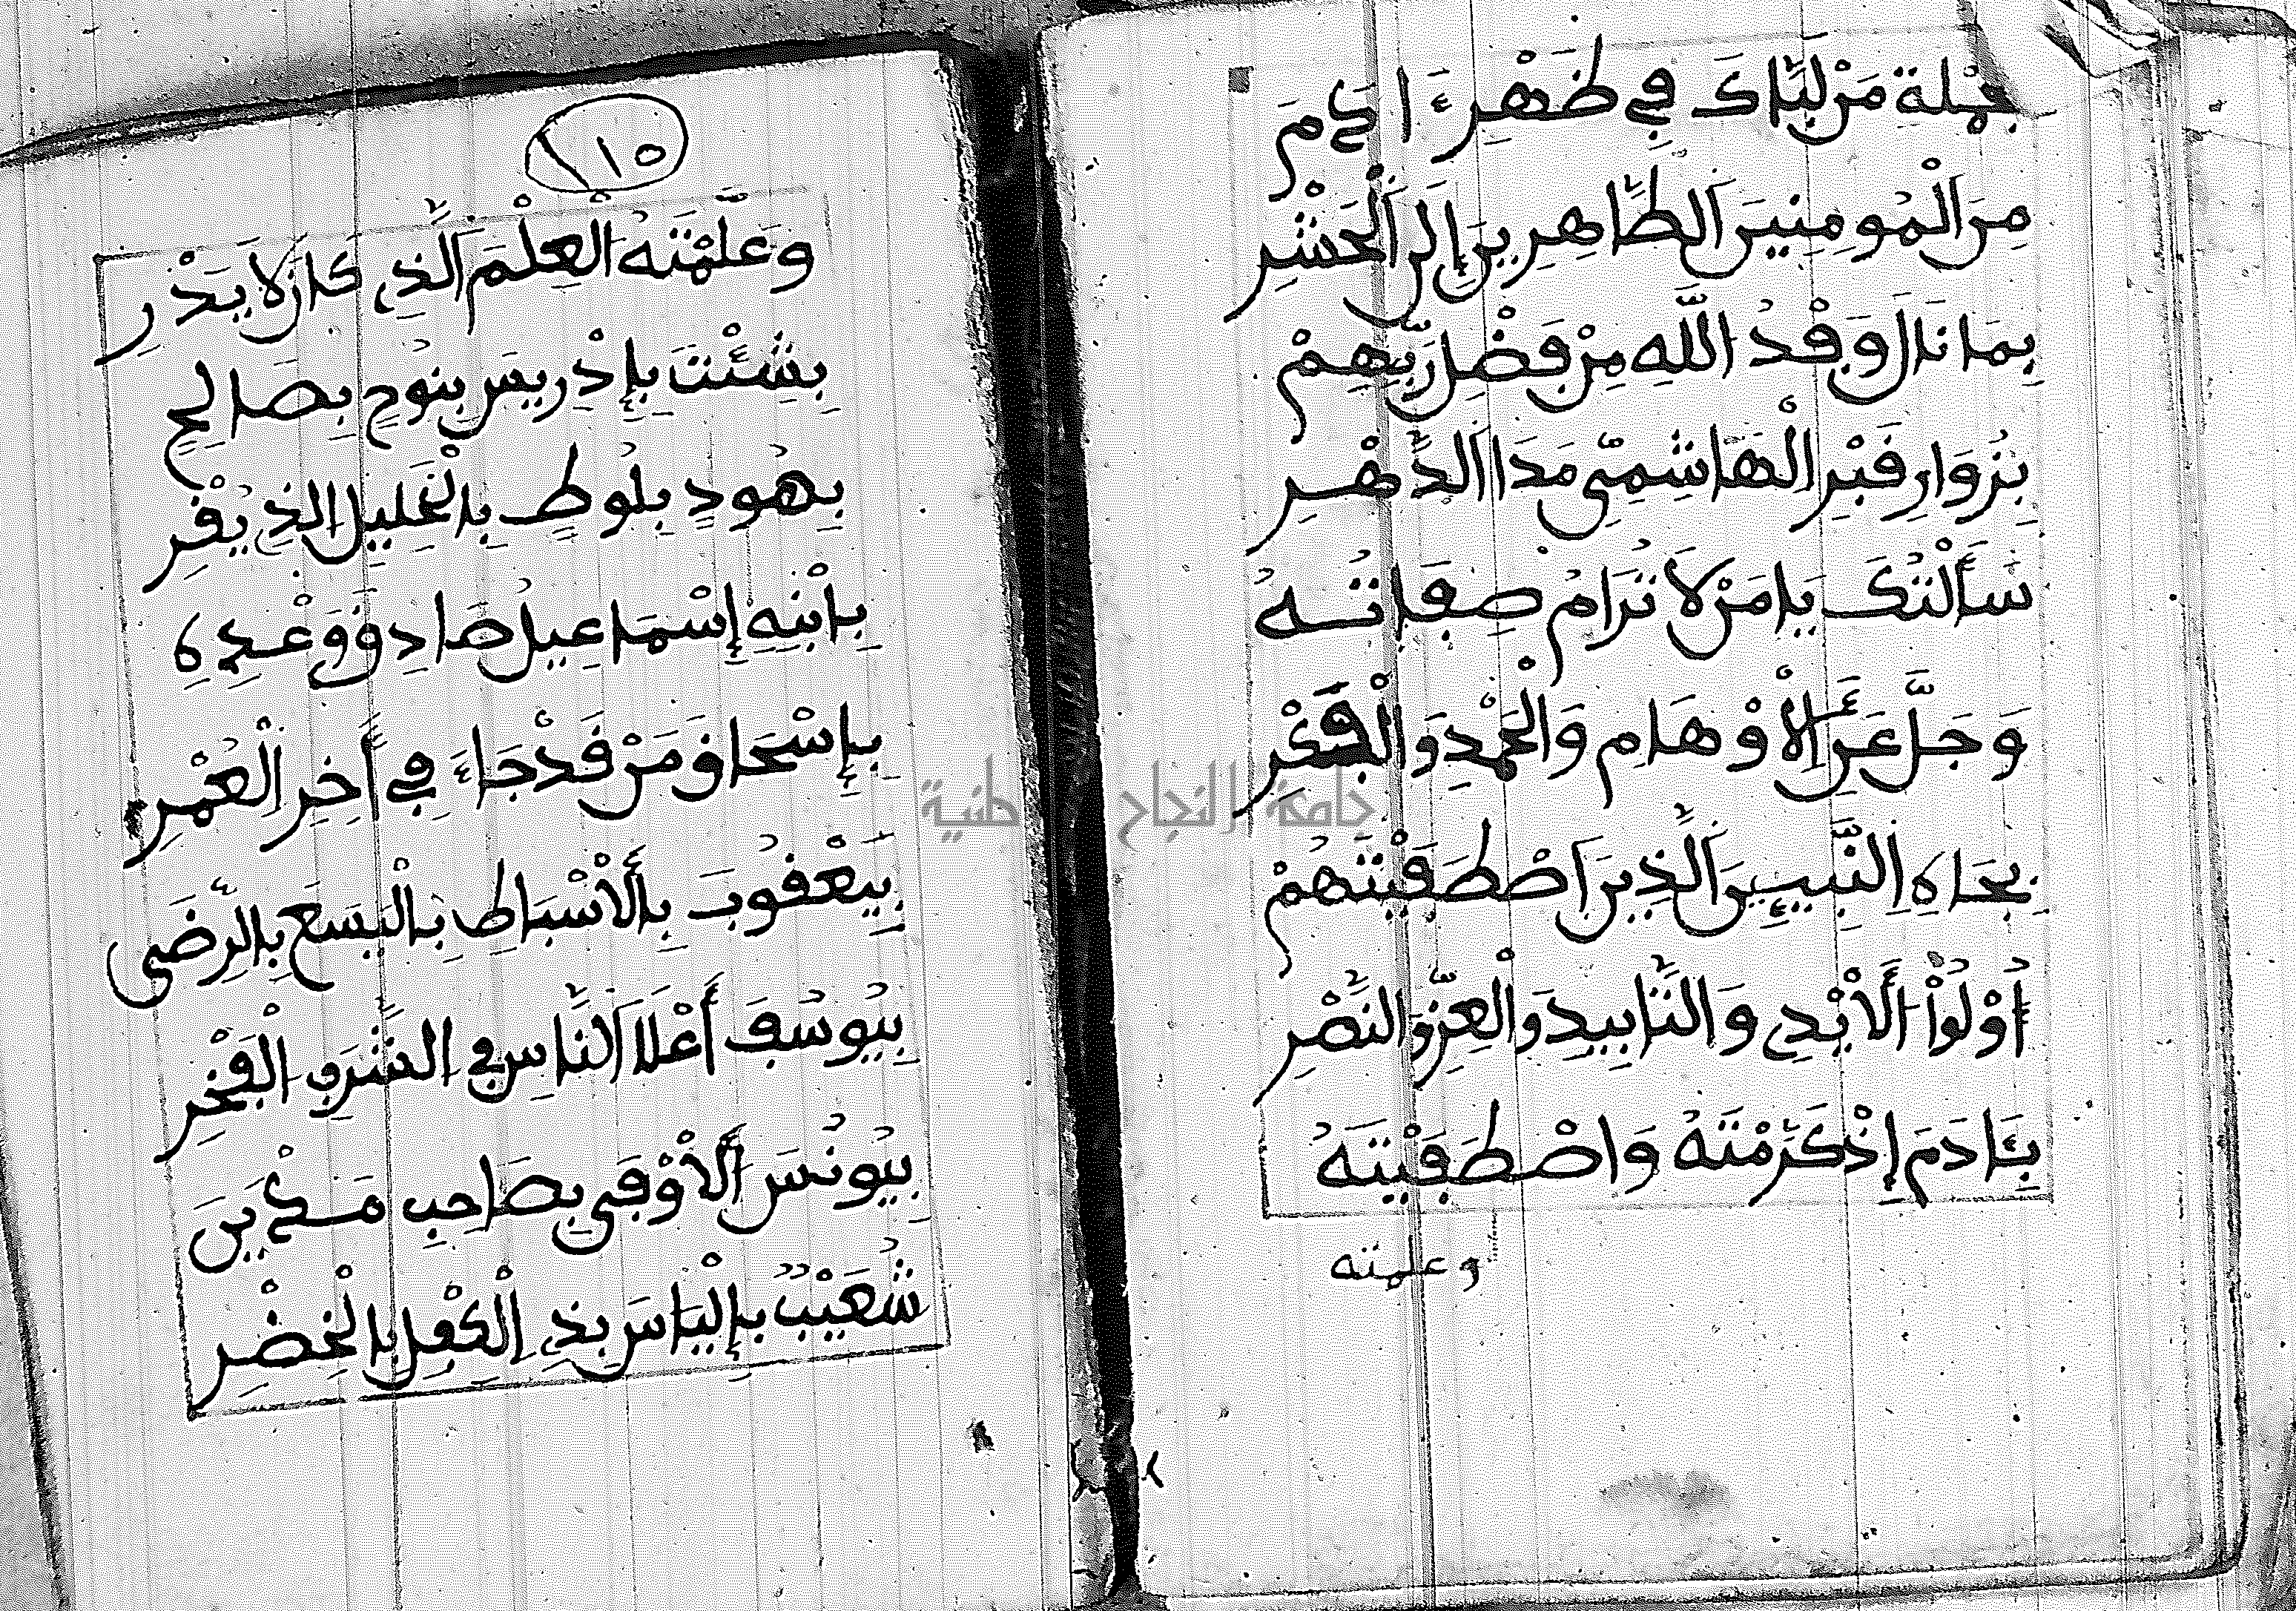 بجملة مَن لَبَّاكَ في ظَهْرِ ءَادَمَ
مِنَ الْمُومِنِينَ الطَّاهِرِينَ إِلَى الْحَشْرِ
بِمَا نَالَ وَفْدُ اللَّهِ مِن فَضْلِ رَبِّهِمْ
بِزُوَارِ قَبْرِ الْهَاشِمِيّ مَدَا الدَّهْرِ
سَأَلْتُكَ يَا مَن لَا تُرَامُ صِفَاتُهُ
وَجَلَّ عَنِ الْأَوْهَامِ وَالْحَمْدِ وَالْفِكْرِ
بِجَاهِ النَّبِيـِٕينَ الَّذِينَ اصْطَفَيْتَهُمْ
أُوْلُواْ الْأَيْدِ وَالتَّابِيدِ وَالْعِزِّ وَالنَّصْرِ
بِـَٔادَمَ إِذْ كَرَّمْتَهُ وَاصْطَفَيْتَهُ
وعلمته
١١٥
وَعَلَّمْتَهُ الْعِلْمَ الَّذِي كَانَ لَا يَدْرِ
بِشِئْتَ بِإِدْرِيسَ بِنُوحٍ بِصَالِحٍ
بِهُودٍ بِلُوطٍ بِالْخَلِيلِ الذِي يُقْرِ
بِابْنِهِ إِسْمَاعِيلَ صَادِقِ وَعْدِهِ
بِإِسْحَاقَ مَن قَدْ جَاءَ فِي ءَاخِرِ الْعُمْرِ
بِيَعْقُوبَ بِالْأَسْبَاطِ بِالْيَسَعَ بِالرِّضَى
بِيُوسُفَ أَعْلَا النَّاسِ فِي الشَّرَفِ الْفَخْرِ
بِيُونُسَ الْأَوْفَى بِصَاحِبِ مَدْيَنَ
شُعَيْبٌ بِإِلْيَاسَ بِذِي الْكِفْلِ بِالْخِضْرِ
جامعة النجاح الوطنية